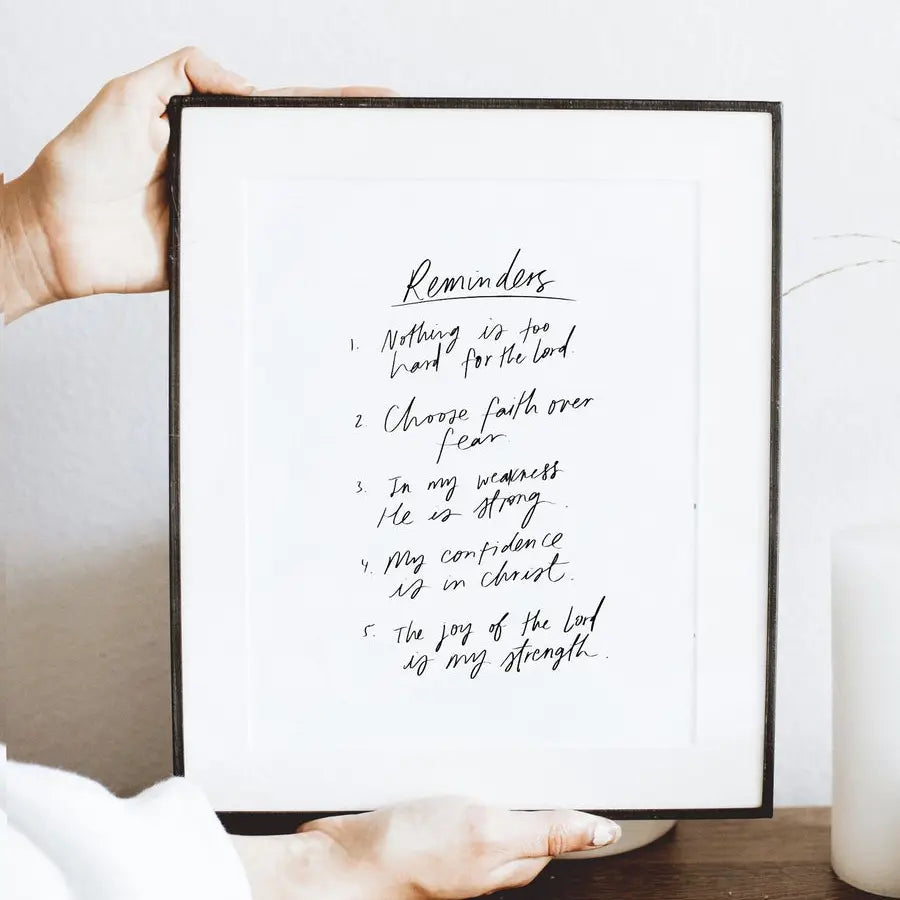 Reminders
1. Nothing is too
hard for the Lord.
2. Choose faith over
fear.
3. In my weakness
He is strong.
4. My confidence
is in Christ.
5. The joy of the Lord
is my strength.